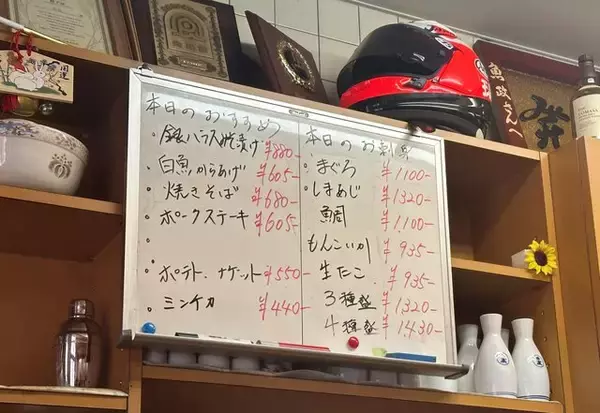 本日のおすすめ
・銀バラス味噌漬け ¥880-
・白魚からあげ ¥605-
・焼きそば ¥680-
・ポークステーキ ¥605-
・
・
・ポテト、ナゲット ¥550-
・ミンチカツ ¥440-
本日のお刺身
・まぐろ ¥1100-
・しまあじ ¥1320-
鯛 ¥1,100-
もんこいか ¥935-
生たこ ¥935-
3種盛 ¥1320-
4種盛 ¥1430-
魚政さんへ